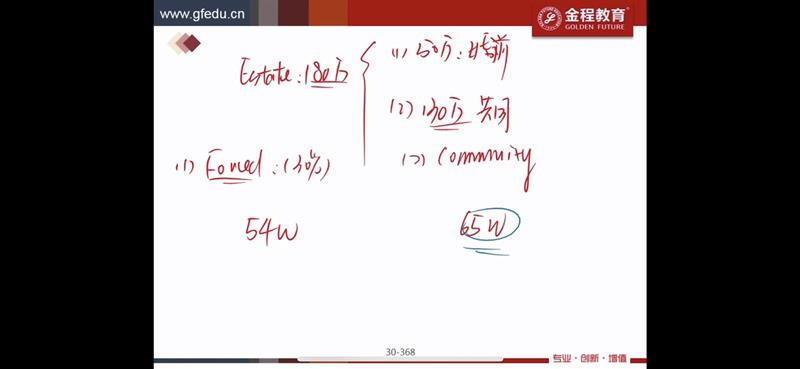 www.gfedu.cn
金程教育
GOLDEN FUTURE
Estate: 180万
(1) 50万: 婚前
(2) 130万 共同
(1) Forced: (30%)
(2) Community
54W
65W
30-368
专业·创新·增值